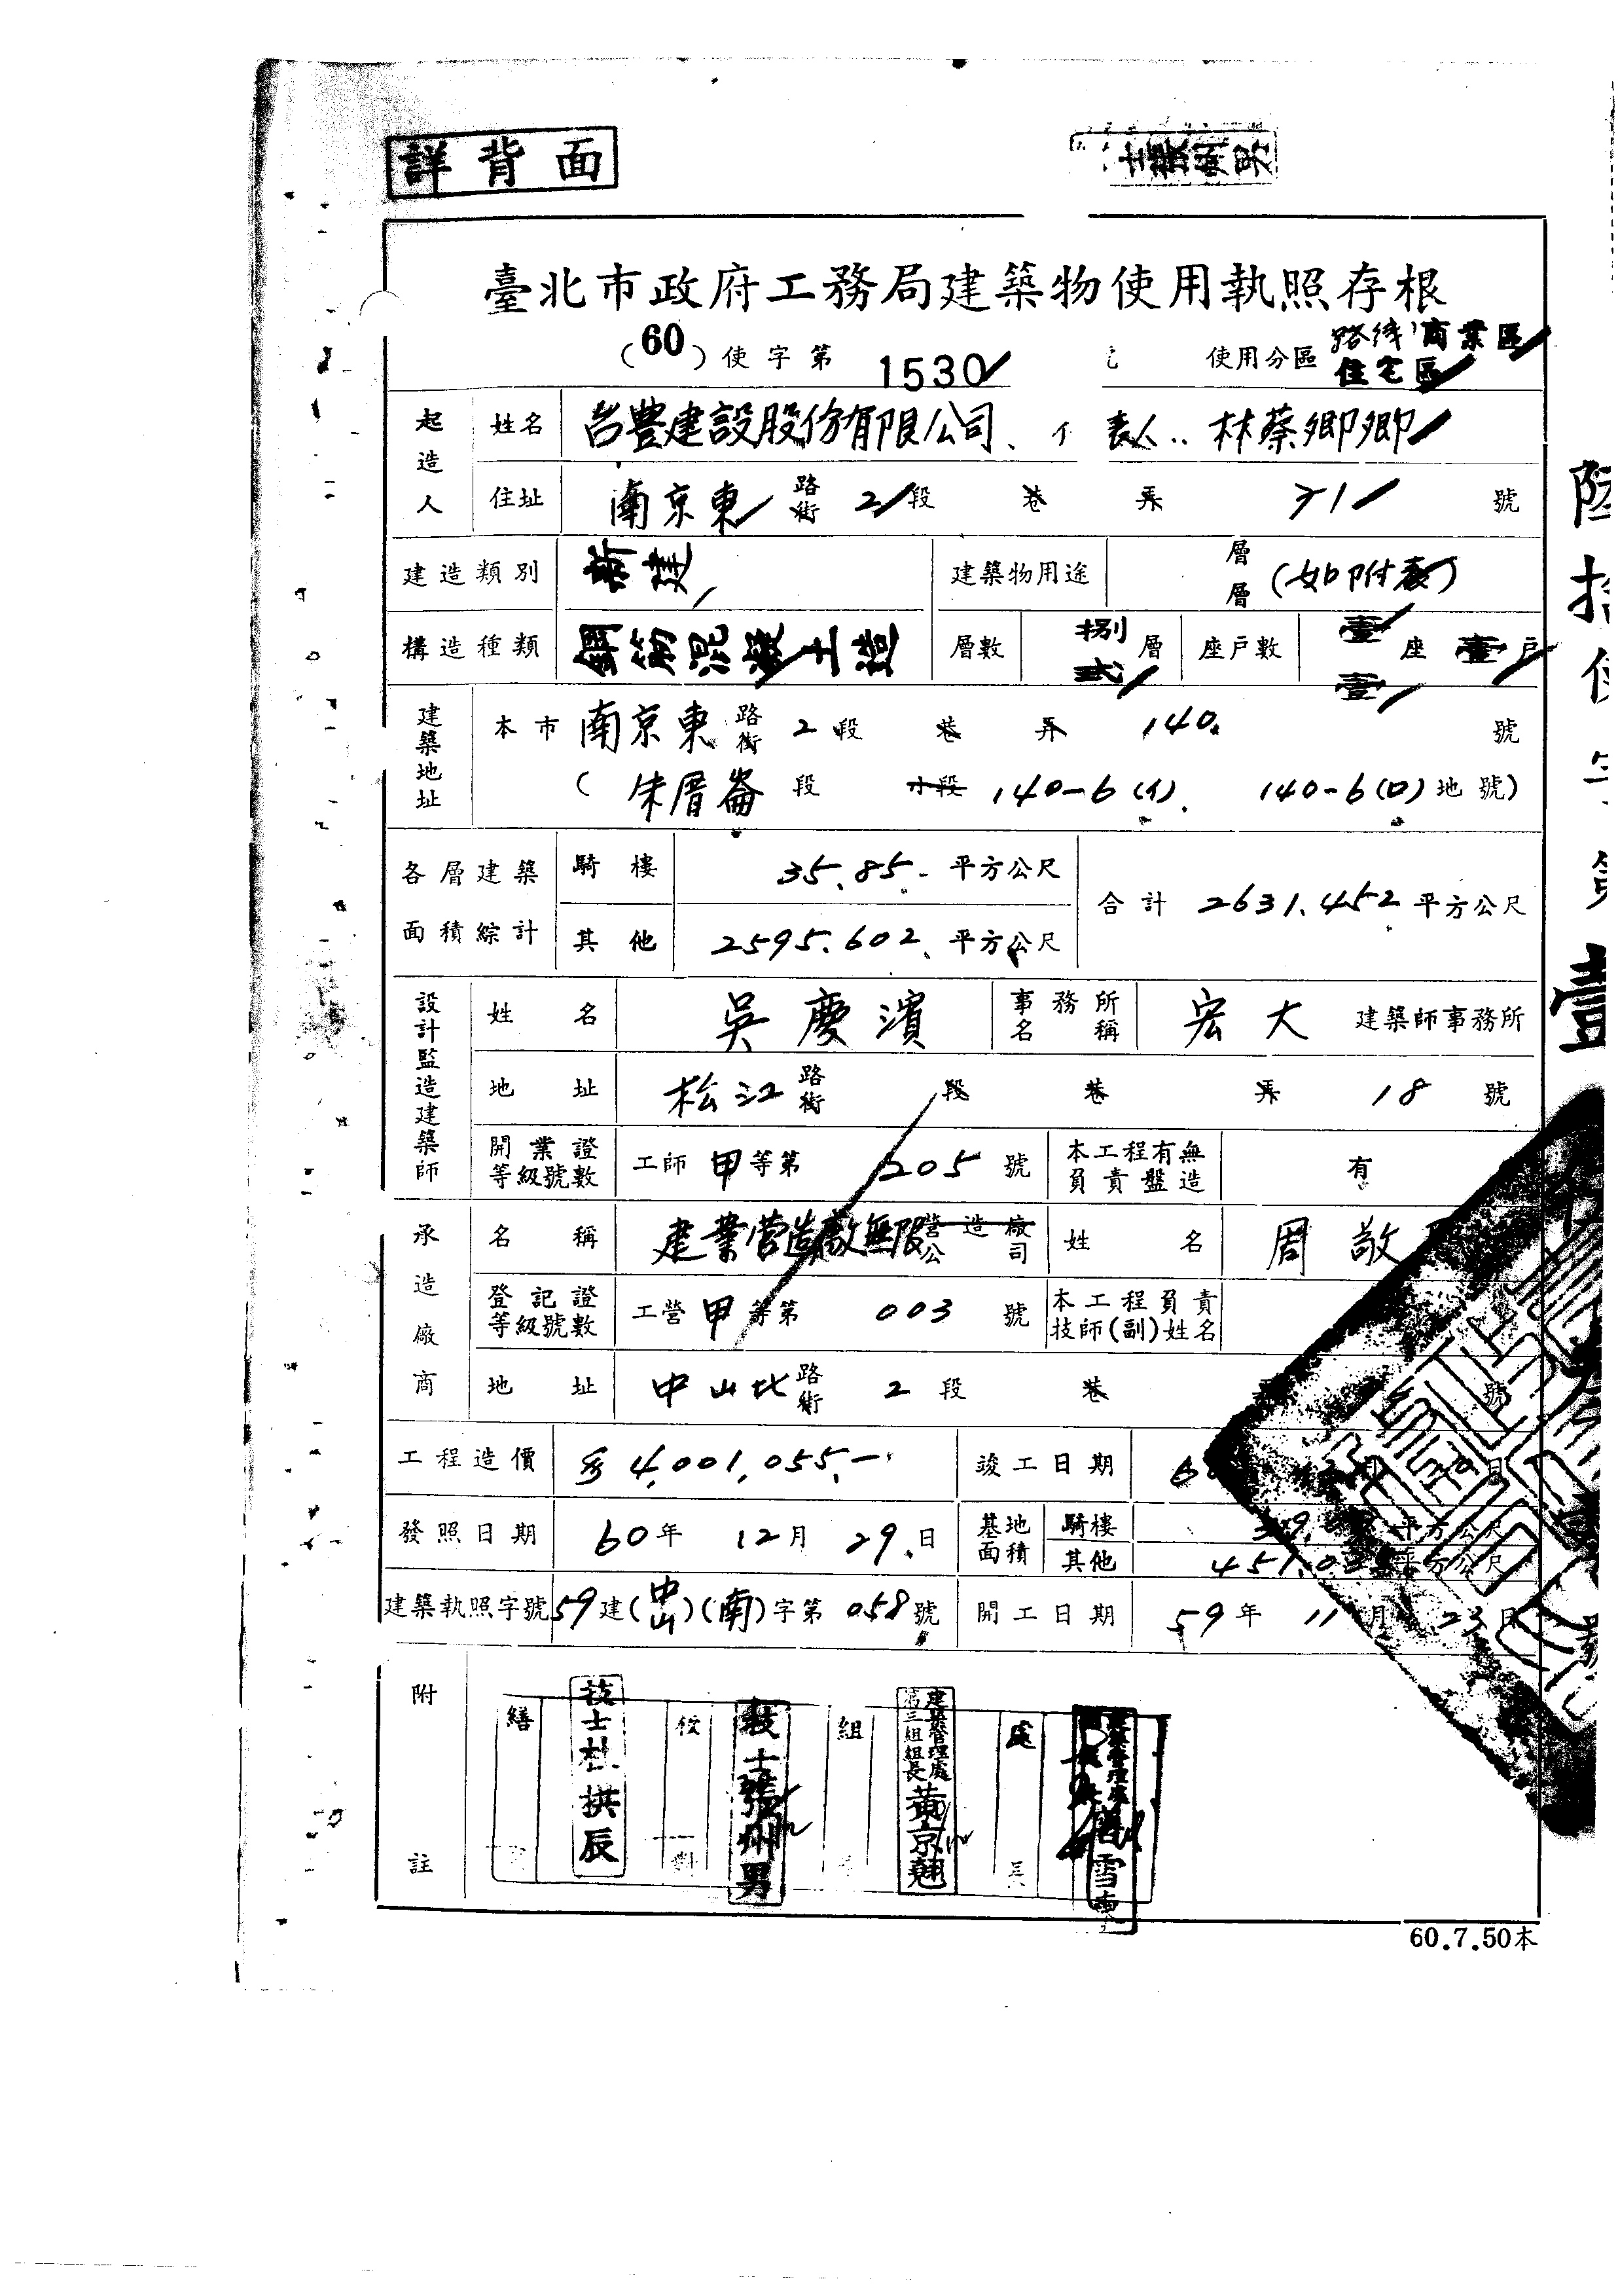 詳背面
臺北市政府工務局建築物使用執照存根
(60)使字第 1530 使用分區 路線商業區 住宅區
起造人 姓名 台豐建設股份有限公司、 表人.. 林蔡卿卿
住址 南京東 路街 2 段 巷 弄 71 號
建造類別 新建 建築物用途 層層(如附表)
構造種類 鋼筋混凝土造 層數 捌 弍 層 座戶數 壹 壹 座 壹 戶
建築地址 本市 南京東 路街 2 段 巷 弄 140 號
(朱厝崙 段 小段 140-6(イ). 140-6(ロ)地號)
各層建築面積綜計 騎樓 35.85 平方公尺 合計 2631.452 平方公尺
其他 2595.602 平方公尺
設計監造建築師 姓名 吳慶濱 事務所名稱 宏大 建築師事務所
地址 松江 路街 段 巷 弄 18 號
開業證等級號數 工師 甲 等第 1205 號 本工程有無負責盤造 有
承造廠商 名稱 建業營造廠無限 營造廠公司 姓名 周敬
登記證等級號數 工營 甲 等第 003 號 本工程負責技師(副)姓名
地址 中山北 路街 2 段 巷 號
工程造價 4,001,055.- 竣工日期
發照日期 60年 12月 29日 基地面積 騎樓 平方公尺
其他 平方公尺
建築執照字號 59建(中山)(南)字第 058號 開工日期 59年 11月 23日
附註
繕 技士 杜拱辰 校對 技士張州男 組 建築管理處第三組組長黃京翹 處長
60.7.50本
壹